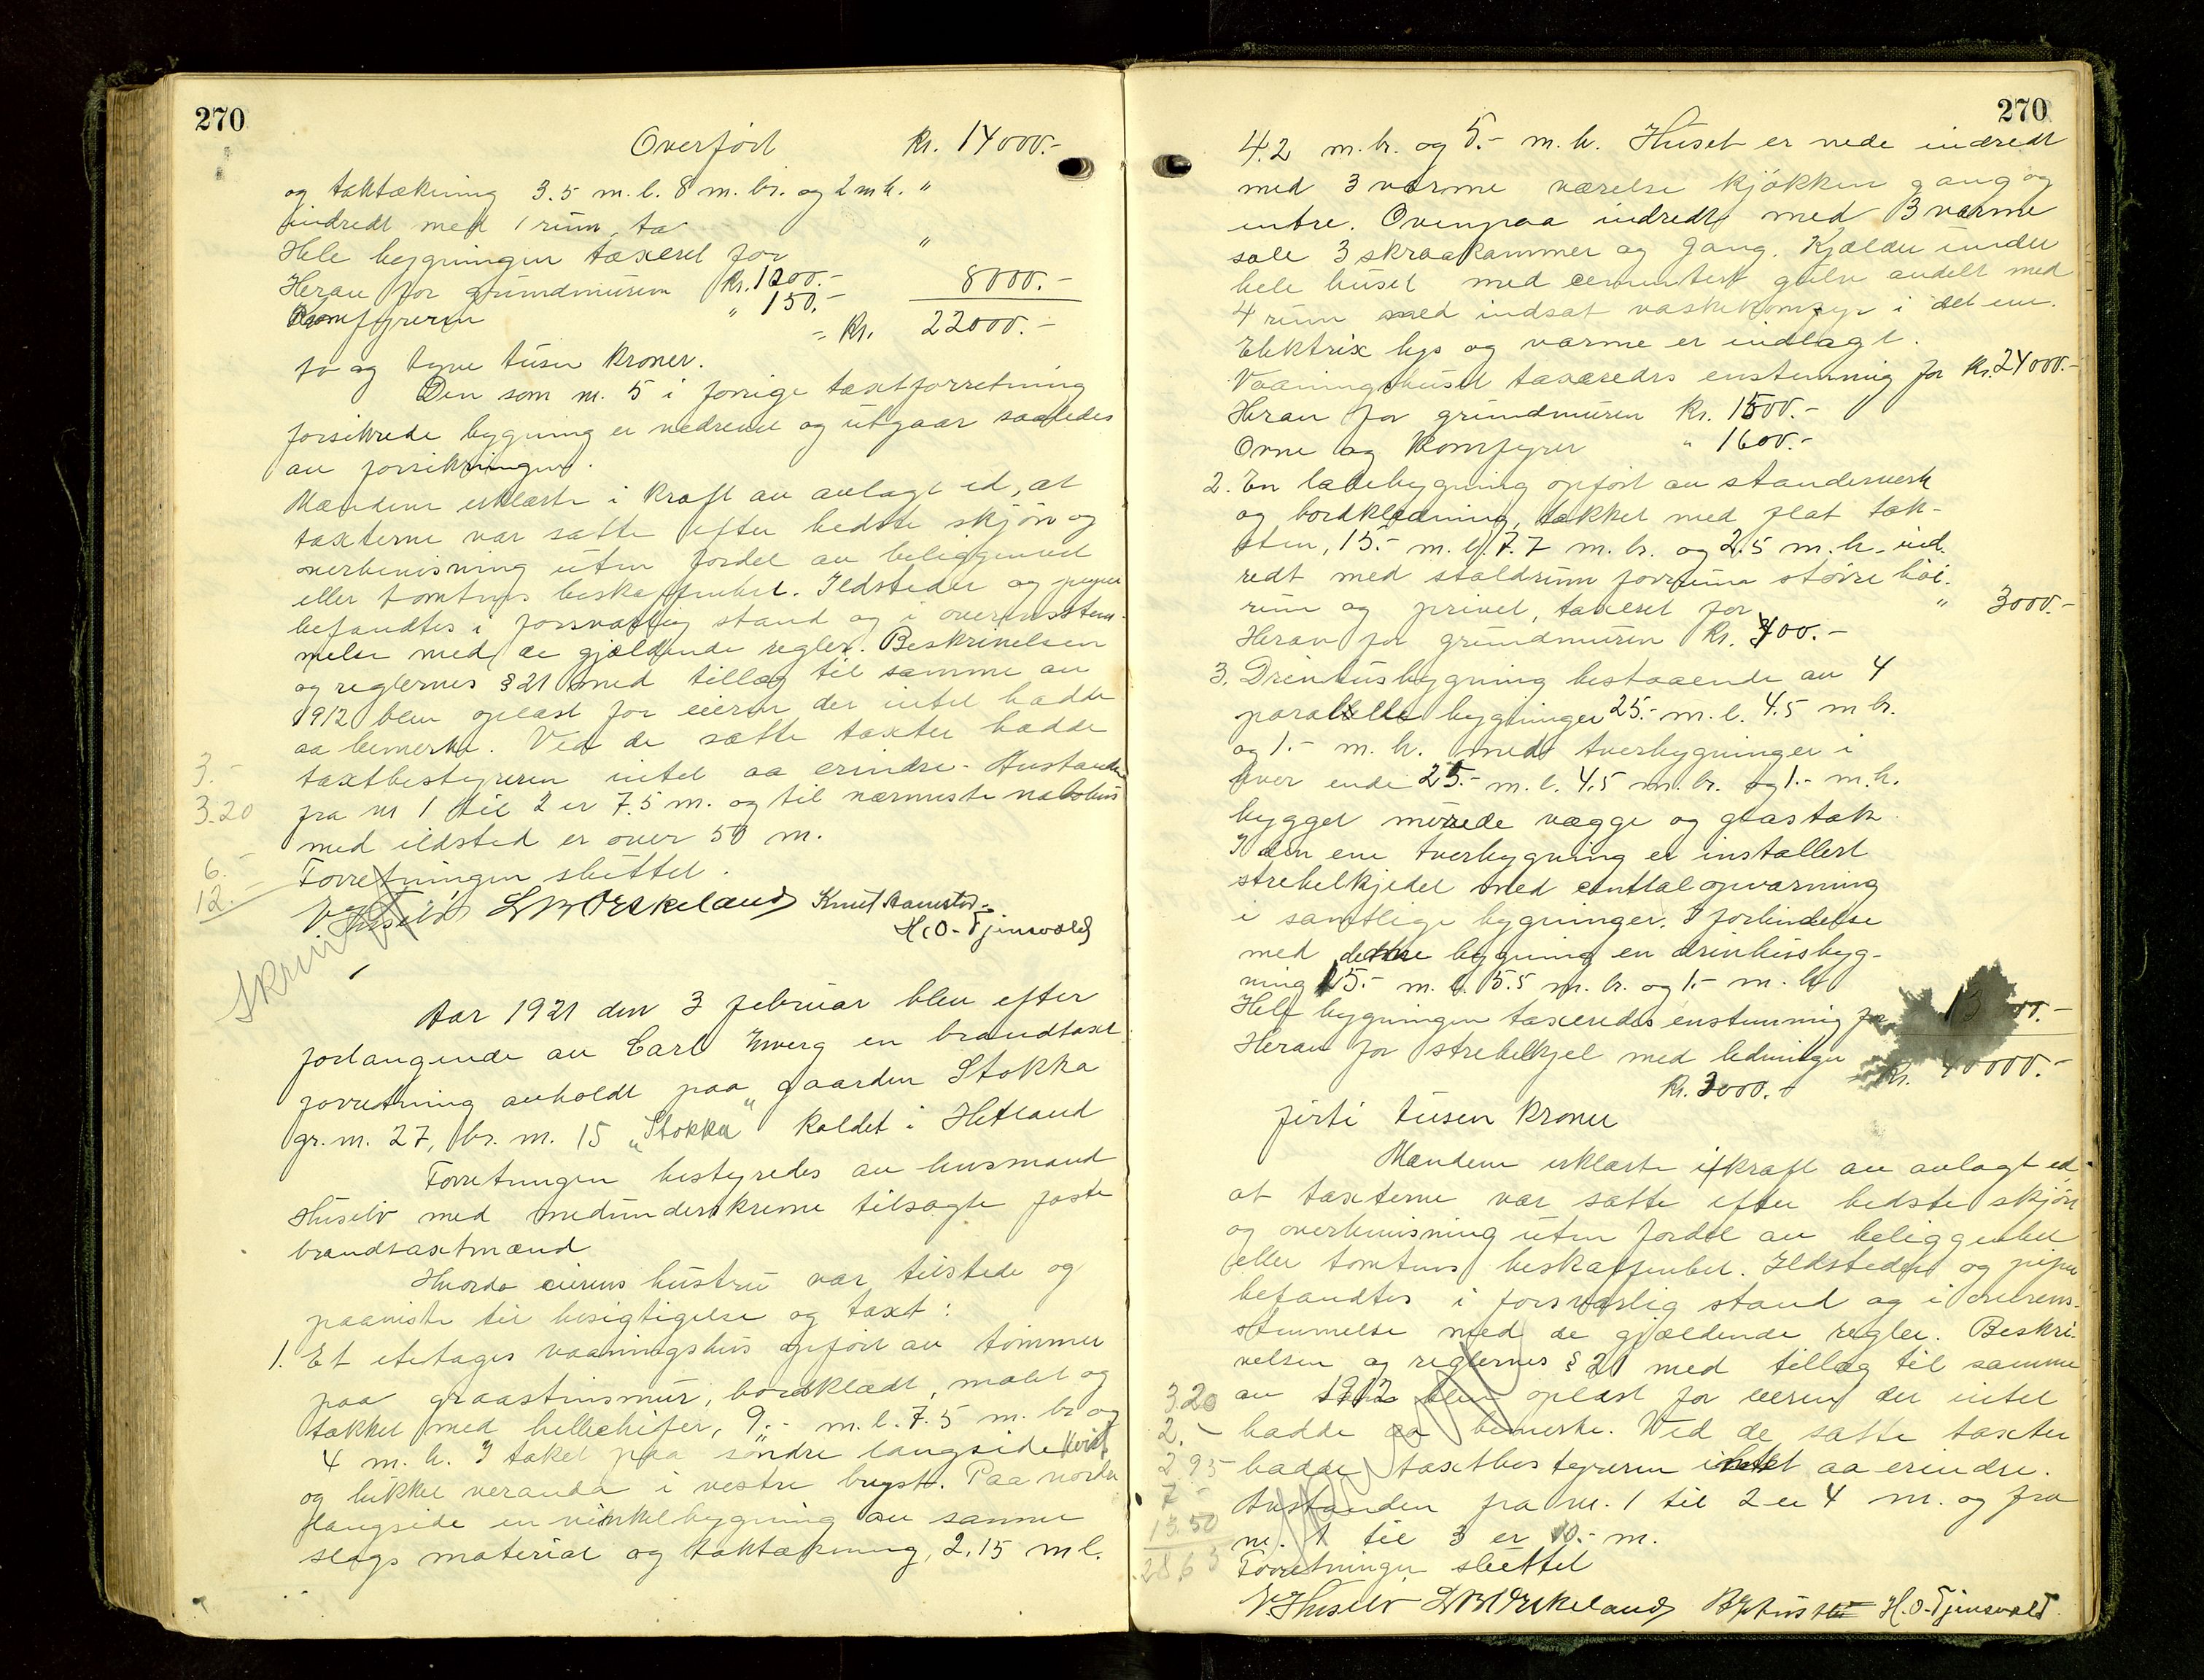 270
Overført Kr. 14000.-
og taktækning 3.5 m.l. 8 m. br. og 2 m h. "
indredt med 1 rum, ta
Hele bygningen taxeret for "
Herav for grundmuren Kr. 1200.- 8000.-
Komfyreren " 150.-
= Kr. 22000.-
to og tyve tusen Kroner.
Den som nr. 5 i forrige taxtforretning
forsikrede bygning er nedrevet og utgaar saaledes
av forsikringen.
Mændene erklærte i kraft av avlagt ed, at
taxterne var satte efter bedste skjøn og
overbevisning uten fordel av beliggenhet
eller tomtens beskaffenhet. Ildsteder og piper
befandtes i forsvarlig stand og i overensstem-
melse med de gjældende regler. Beskrivelsen
og reglernes § 21 med tillæg til samme av
1912 blev oplæst for eieren der intet hadde
aa bemerke. Ved de satte taxter hadde
3.- taxtbestyreren intet aa erindre. Avstanden
3.20 fra nr 1 til 2 er 7.5 m. og til nærmeste nabohus
med ildsted er over 50 m.
6.- Forretningen sluttet.
12.-
V. Huseby L M Orskeland Knut H.O. Tjensvold
Aar 1921 den 3 februar blev efter
forlangende av Carl en brandtaxt
forretning avholdt paa gaarden Stokka
gr. nr. 27, br. nr. 15 "Stokka" kaldet i Hetland
Forretningen bestyredes av lensmand
Huseby med medunderskrevne tilsagte faste
brandtaxtmænd
Hvorda eierens hustru var tilstede og
paaviste til besigtigelse og taxt:
1. Et etetages vaaningshus opført av tømmer
paa graastensmur, bordklædt, malet og
tækket med helleskifer, 9.- m.l. 7.5 m. br og
4 m. h. I taket paa søndre langside kvist
og lukket veranda i vestre bryst. Paa nordre
langside en vinkelbygning av samme
slags material og taktækning, 2.15 m l.
270
4.2 m. br. og 5.- m. h. Huset er nede indredt
med 3 varme værelse kjøkken gang og
entre. Ovenpaa indredt med 3 varme
sale 3 skraakammer og gang. Kjælder under
hele huset med cementert gulv avdelt med
4 rum med indsat vaskekomfyr i det ene.
Elektrix lys og varme er indlagt.
Vaaningshuset taxeredes enstemmig for Kr. 24000.-
Herav for grundmuren Kr. 1500.-
Ovne og Komfyrer " 1600.-
2. En ladebygning opført av standerverk
og bordklædning, tækket med flat tak-
sten, 15.- m. l. 7.7 m. br. og 2.5 m. h. ind-
redt med staldrum forrum større høi-
rum og privet, taxeret for " 3000.-
Herav for grundmuren Kr. 400.-
3. Drivhusbygning bestaaende av 4
paralelle bygninger 25.- m. l. 4.5 m br.
og 1.- m. h. med tverbygninger i
hver ende 25.- m. l. 4.5 m. br. og 1.- m. h.
bygget murede vægge og glastak
I den ene tverbygning er installert
strebelkjedel med centtalopvarmning
i samtlige bygninger. I forbindelse
med denne bygning en drivhusbyg-
ning 15.- m. l. 5.5 m. br. og 1.- m. h
Hele bygningen taxeredes enstemmig for 13 00.-
Herav for strebelkjel med ledninger Kr. 40000.-
Kr. 3000.-
firti tusen Kroner
Mændene erklærte i kraft av avlagt ed
at taxterne var satte efter bedste skjøn
og overbevisning uten fordel av beliggenhet
eller tomtens beskaffenhet. Ildsteder og piper
befandtes i forsvarlig stand og i overens-
stemmelse med de gjældende regler. Beskri-
velsen og reglernes § 21 med tillæg til samme
3.20 av 1912 blev oplæst for eieren der intet
2.- hadde aa bemerke. Ved de satte taxter
2.95 hadde taxtbestyreren intet aa erindre.
7.- Avstanden fra nr. 1 til 2 er 4 m. og fra
13.50 nr. 1 til 3 er 10.- m.
Forretningen sluttet
V. Huseby L M Orskeland H.O. Tjensvold